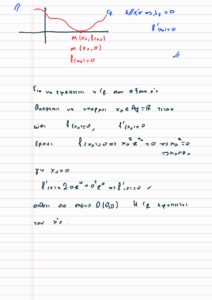 C_f
εφ//x'x ⇔ λ_ε = 0
f'(x₀)=0
M(x₀, f(x₀))
M(x₀, 0)
f(x₀)=0
Για να εφάπτεται η C_f στον άξονα x'x
θα πρέπει να υπάρχει x₀ ∈ A_f = ℝ τέτοιο
ώστε f(x₀)=0, f'(x₀)=0
Έχουμε f(x₀)=0 ⇔ x₀² e^{x₀} = 0 ⇔ x₀² = 0
⇔ x₀=0.
για x₀=0
f'(0)= 2·0e⁰ + 0²e⁰ ⇔ f'(0)=0
στο σημείο O(0,0) Η C_f εφάπτεται
του x'x.